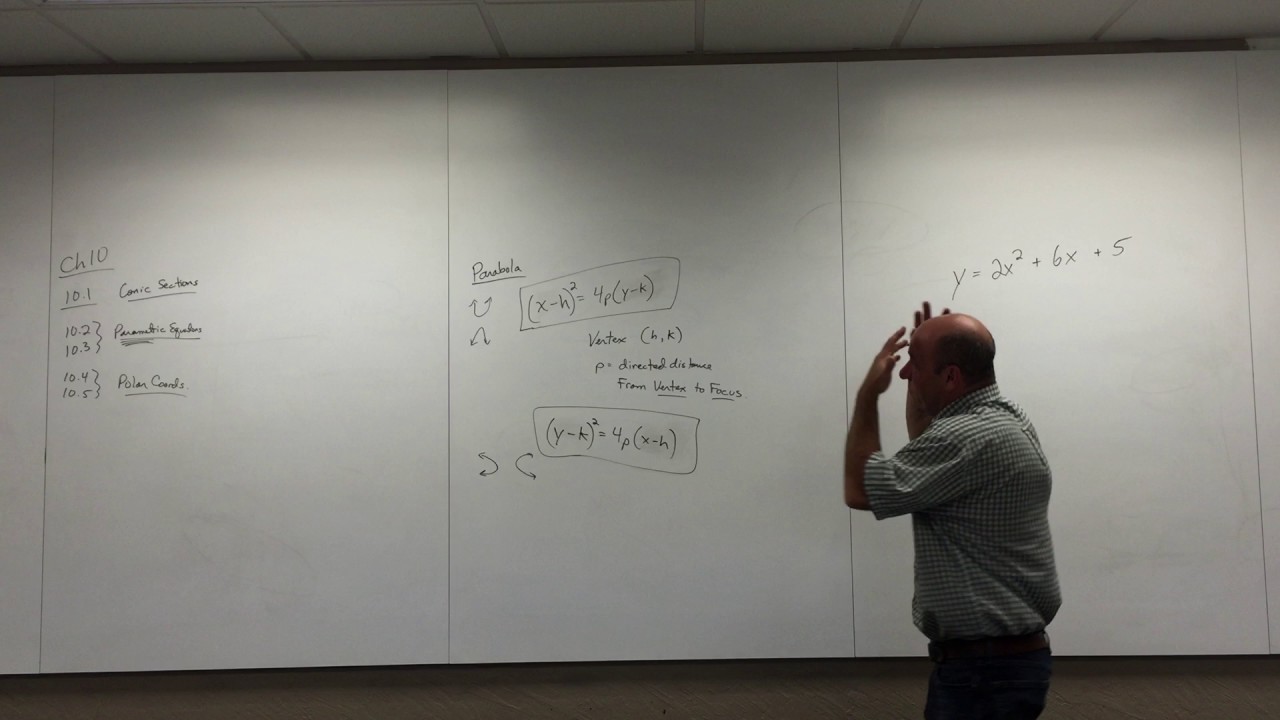 Ch10
10.1 Conic Sections
10.2} Parametric Equations
10.3}
10.4} Polar Coords.
10.5}
Parabola
(x-h)² = 4p(y-k)
Vertex (h, k)
p = directed distance
From Vertex to Focus
(y-k)² = 4p(x-h)
y = 2x² + 6x + 5